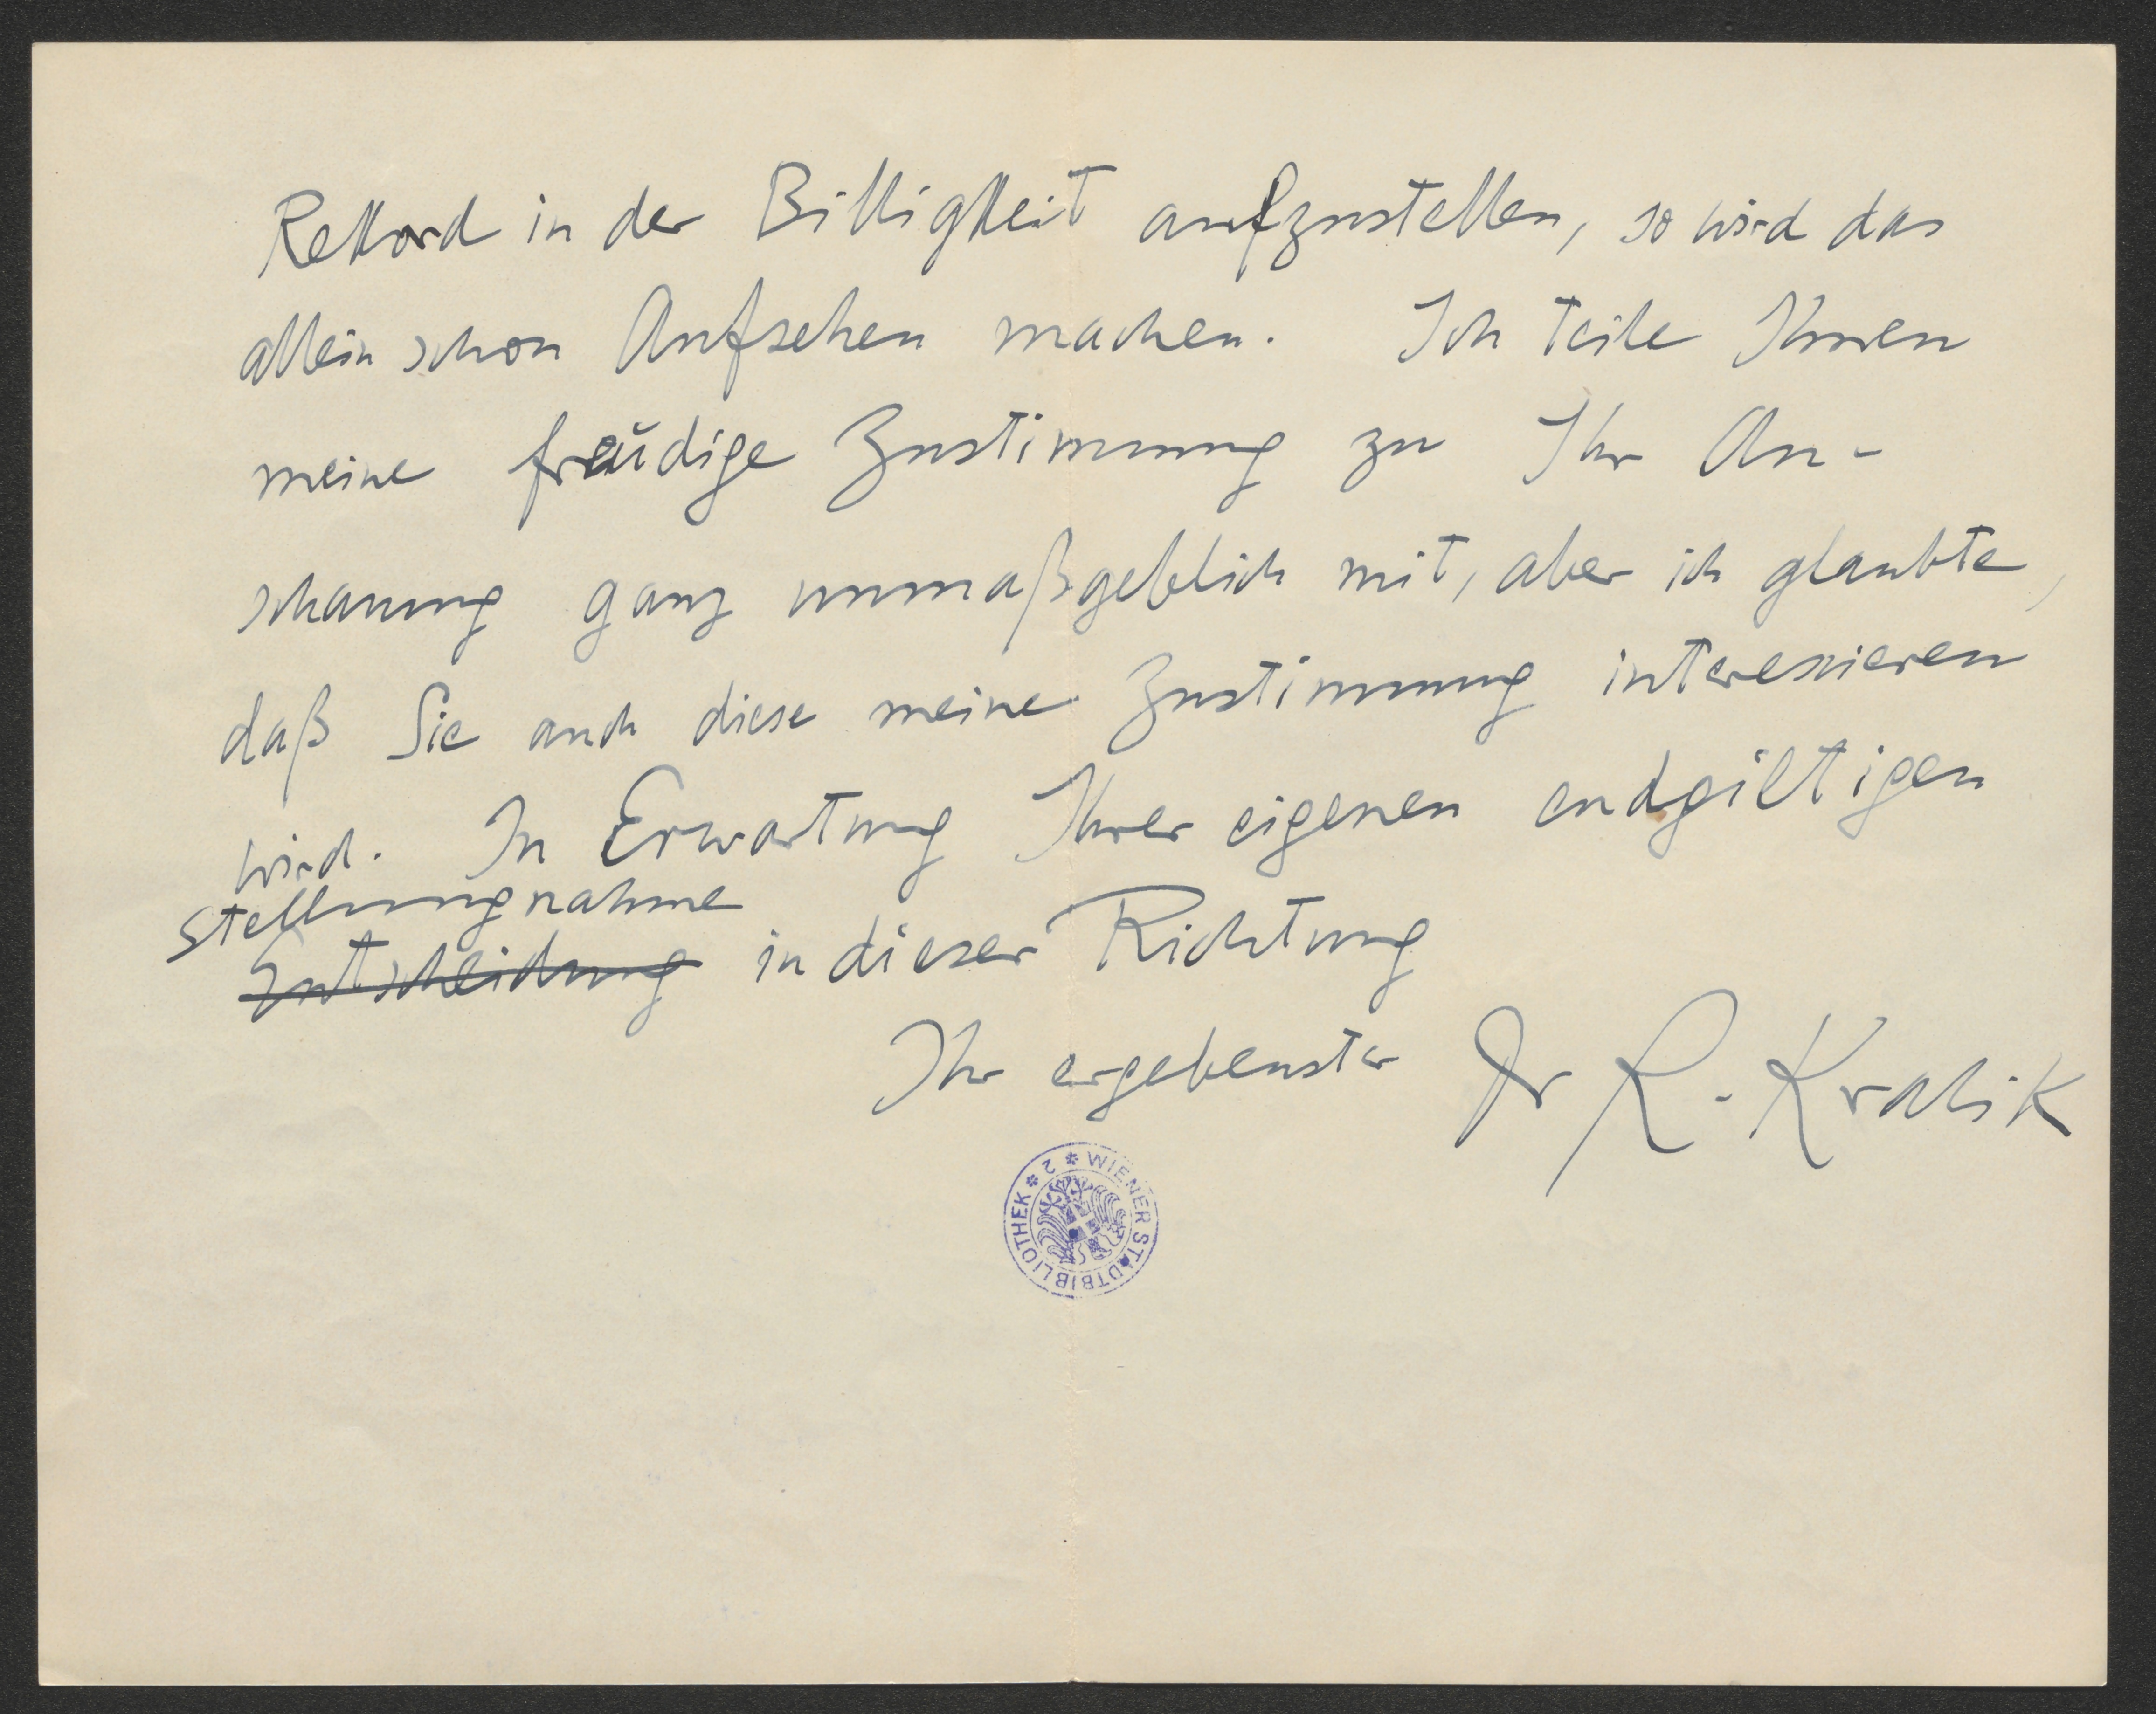 Rekord in der Billigkeit aufzustellen, so wird das
allein schon Aufsehen machen. Ich teile Ihnen
meine freudige Zustimmung zu Ihr An-
schauung ganz unmaßgeblich mit, aber ich glaubte,
daß Sie auch diese meine Zustimmung interessieren
wird. In Erwartung Ihrer eigenen endgiltigen
Stellungnahme
Entscheidung in dieser Richtung
Ihr ergebenster Dr R. Kralik
WIENER STADTBIBLIOTHEK * 2 *